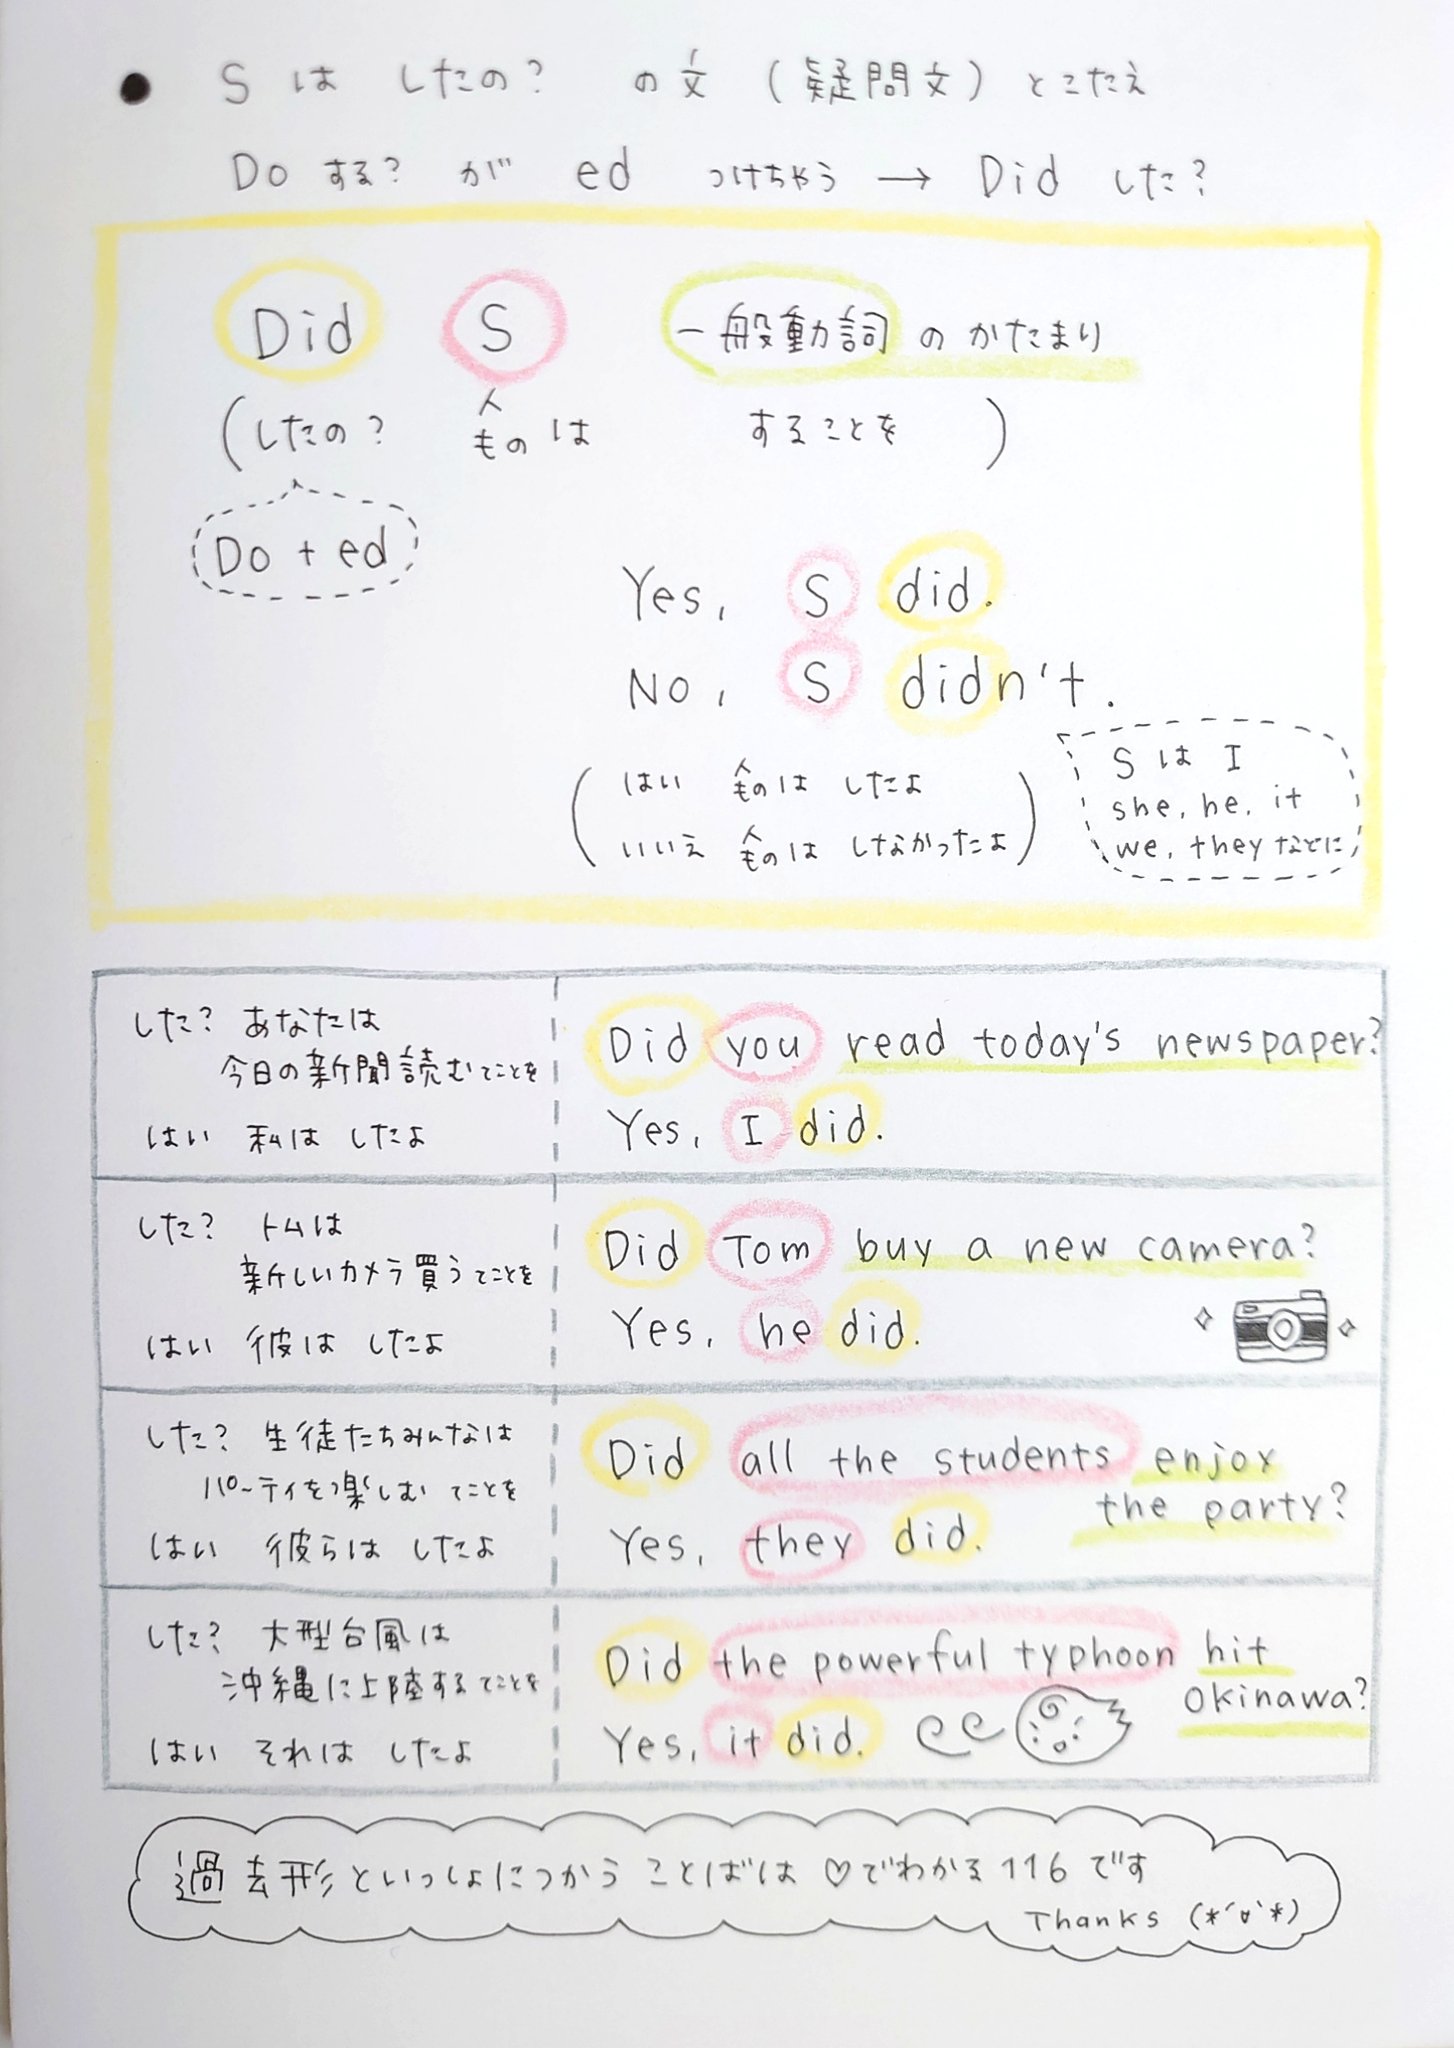 ● S は したの? の文 (疑問文) とこたえ
Do する? が ed つけちゃう → Did した?
Did S 一般動詞 の かたまり
(したの? 人 ものは することを)
Do + ed
Yes, S did.
No, S didn't.
(はい 人 ものは したよ
いいえ 人 ものは しなかったよ)
S は I
she, he, it
we, they などに
した? あなたは
今日の新聞読むてことを
はい 私は したよ
Did you read today's newspaper?
Yes, I did.
した? トムは
新しいカメラ買うてことを
はい 彼は したよ
Did Tom buy a new camera?
Yes, he did.
した? 生徒たちみんなは
パーティを楽しむてことを
はい 彼らは したよ
Did all the students enjoy
the party?
Yes, they did.
した? 大型台風は
沖縄に上陸するてことを
はい それは したよ
Did the powerful typhoon hit
Okinawa?
Yes, it did.
過去形といっしょにつかう ことばは ♡でわかる116です
Thanks (*´∀`*)